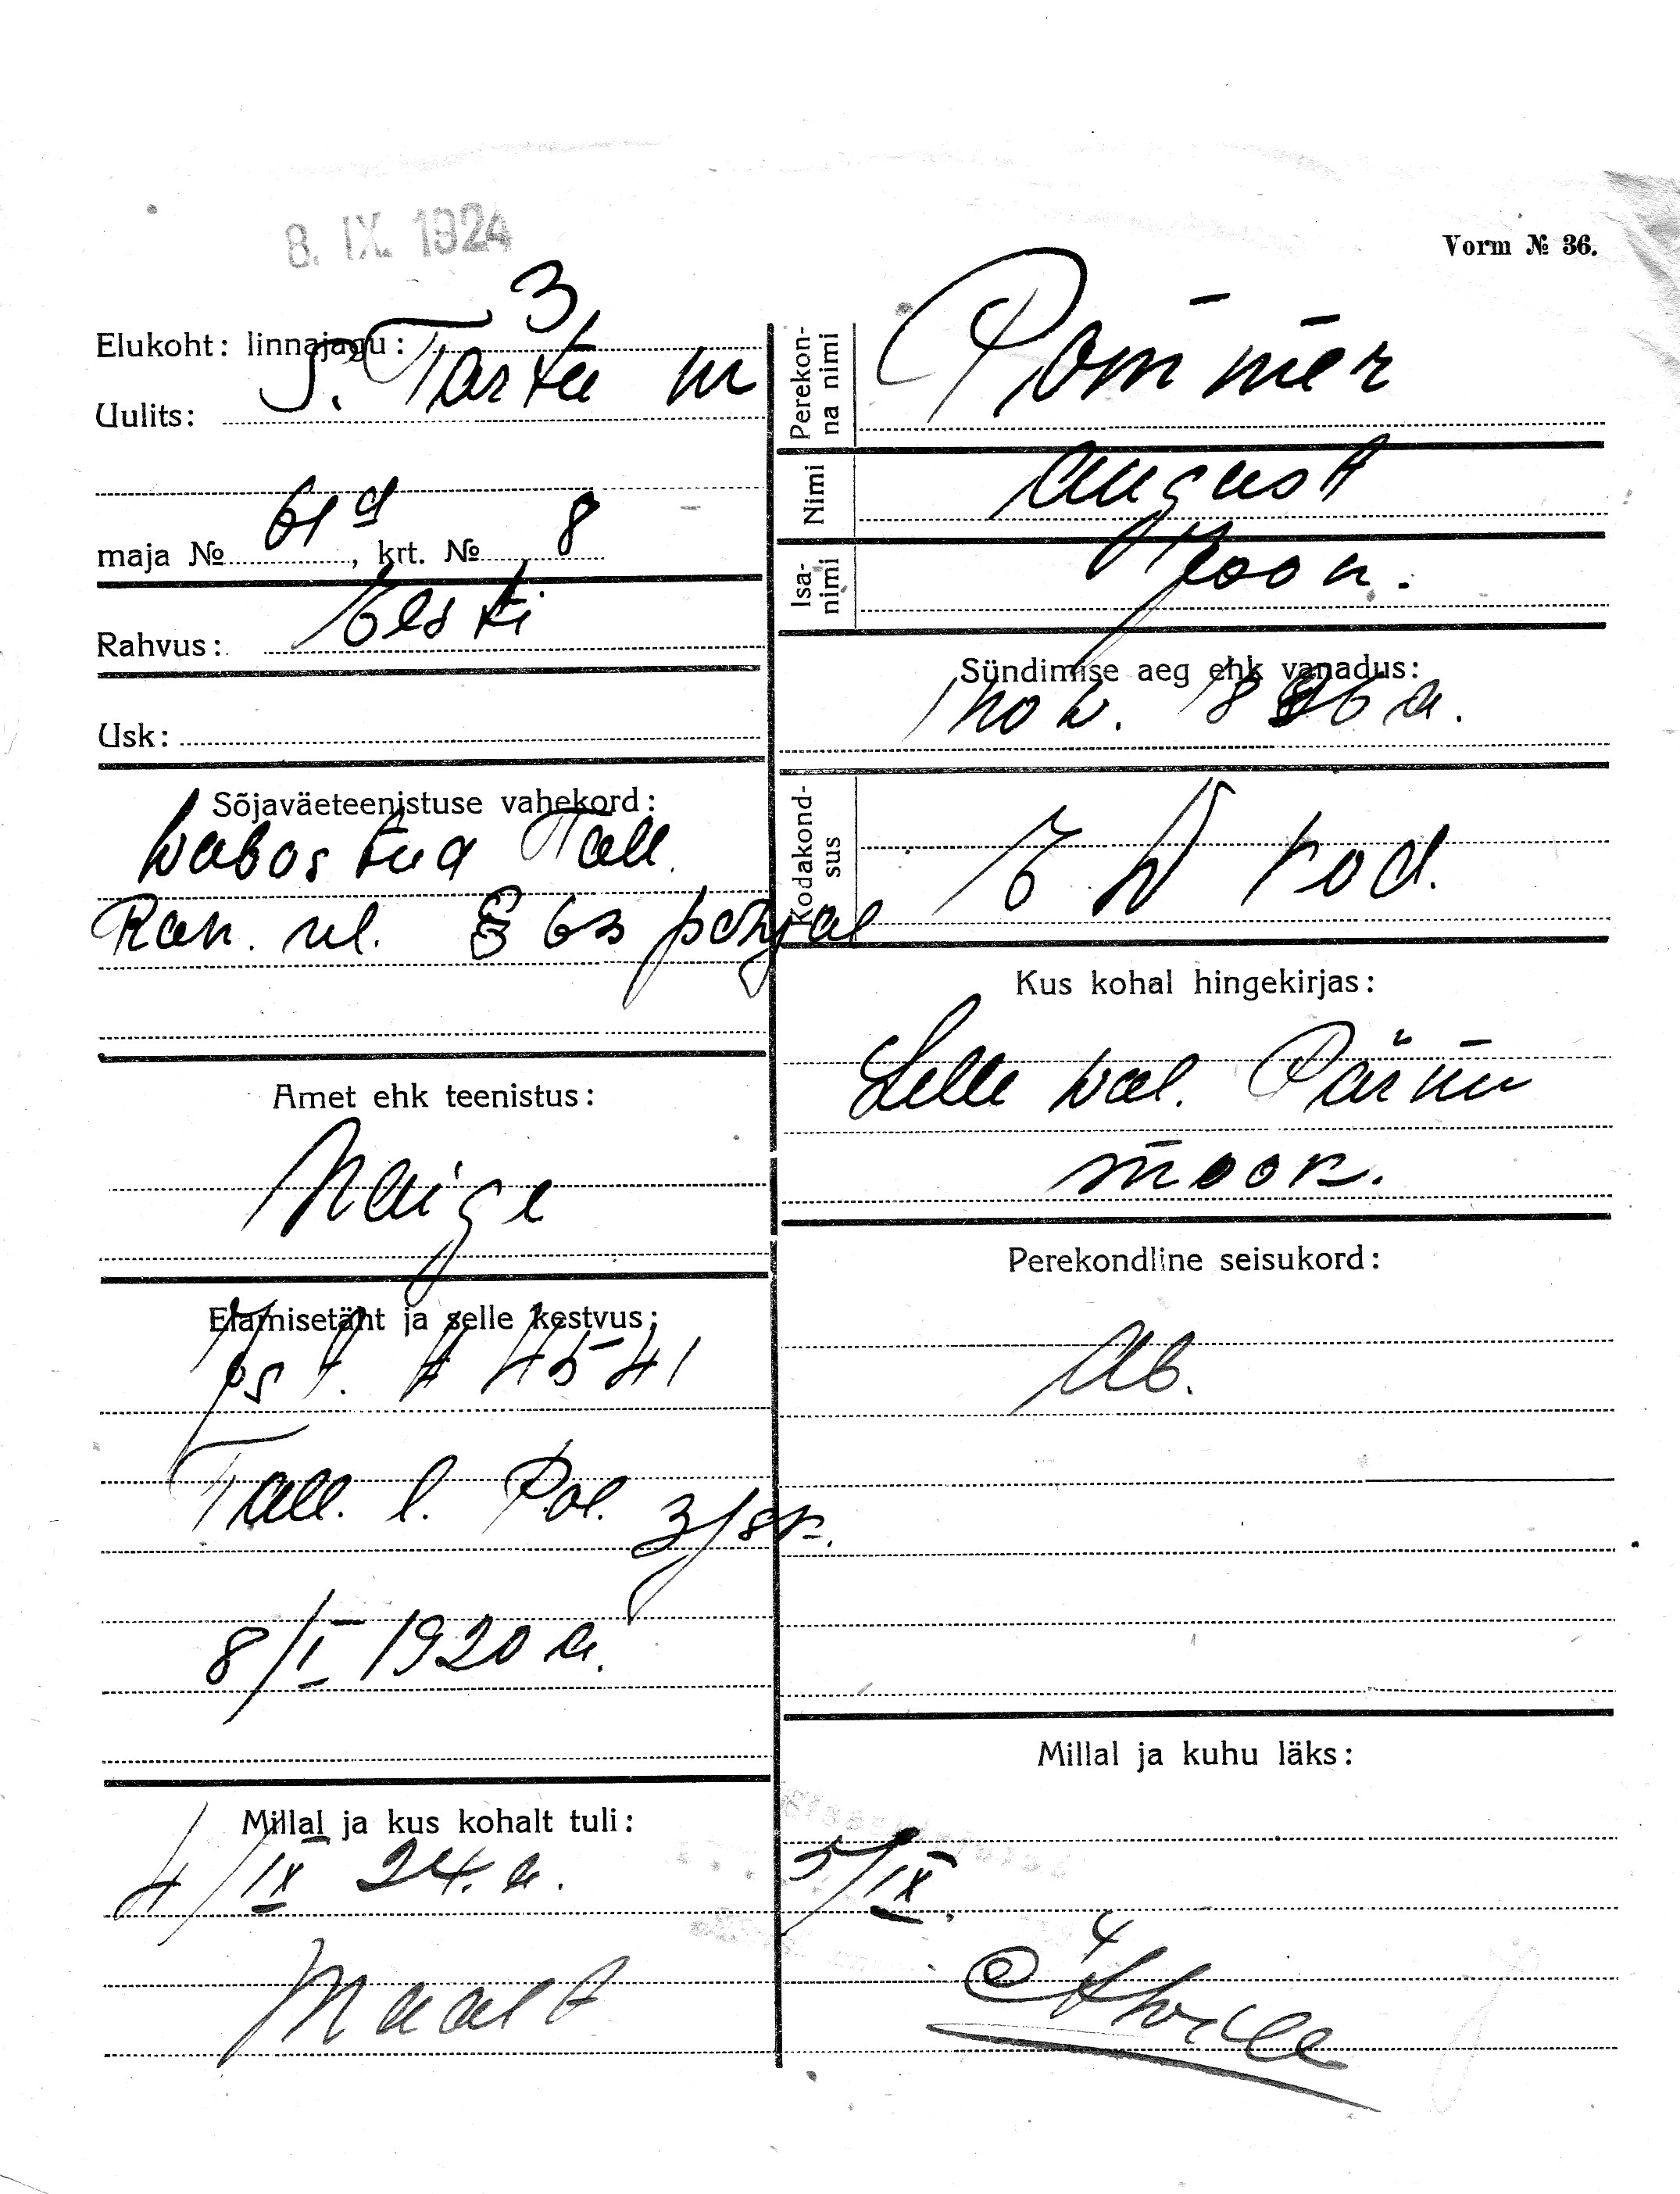 8. IX. 1924
Vorm № 36.
Elukoht: linnajagu: 3
Uulits: S. Tartu m
maja № 61a, krt. № 8
Rahvus: Eesti
Usk:
Sõjaväeteenistuse vahekord:
wabostud Tall.
Rah. ül. § 63 põhjal
Amet ehk teenistus:
Haige
Elamisetäht ja selle kestvus:
Is t. A 4541
Tall. l. Pol. 3 jsk.
8/I 1920 a.
Millal ja kus kohalt tuli:
4/IX 24. a.
Maalt
Perekonna nimi
Pom̄m̄er
Nimi
August
Isanimi
Joon.
Sündimise aeg ehk vanadus:
now. 1896 a.
Kodakondsus
E W kod.
Kus kohal hingekirjas:
Lelle wal. Pärnu
maak.
Perekondline seisukord:
Ab.
Millal ja kuhu läks:
5/IX.